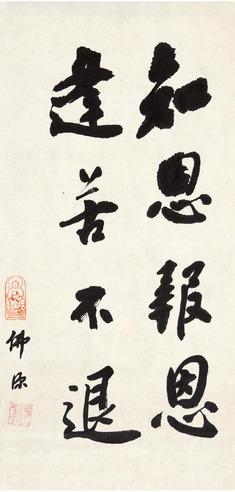 知恩報恩
達苦不退
佛源